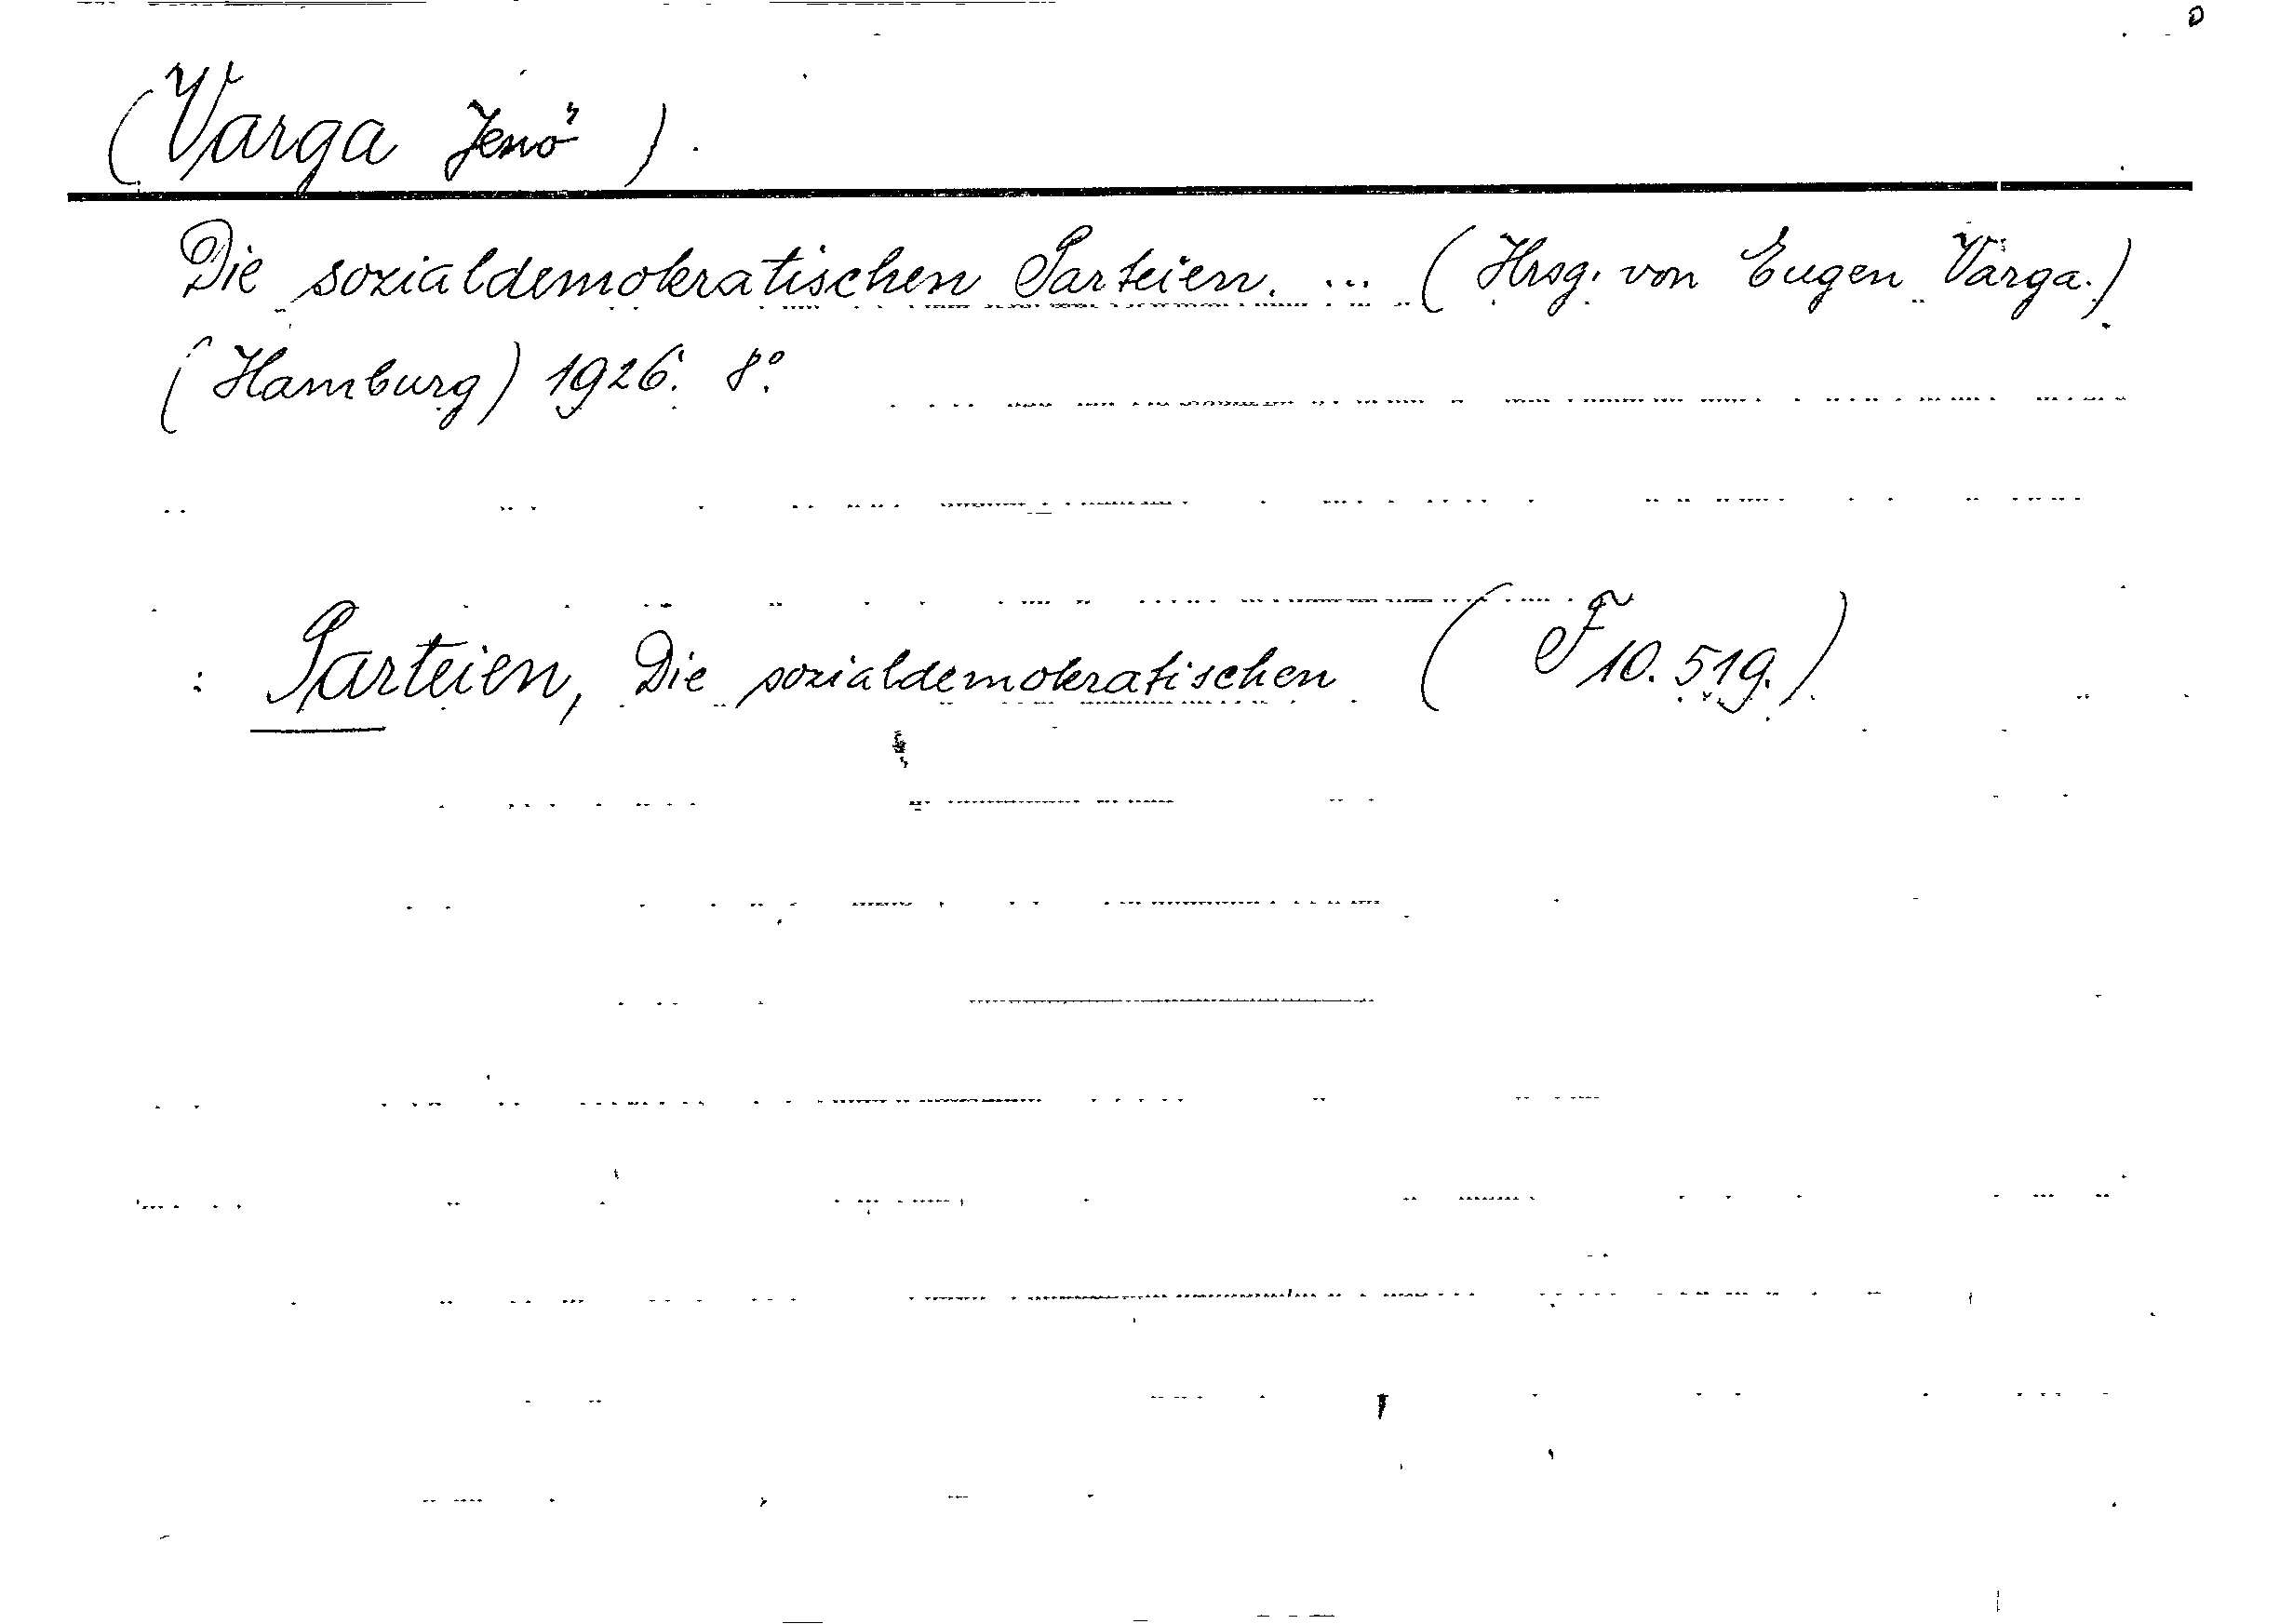 (Varga Jenő).
Die sozialdemokratischen Parteien. ... (Hrsg. von Eugen Varga.)
(Hamburg) 1926. 8°.
: Parteien, Die sozialdemokratischen (F 10.519.)